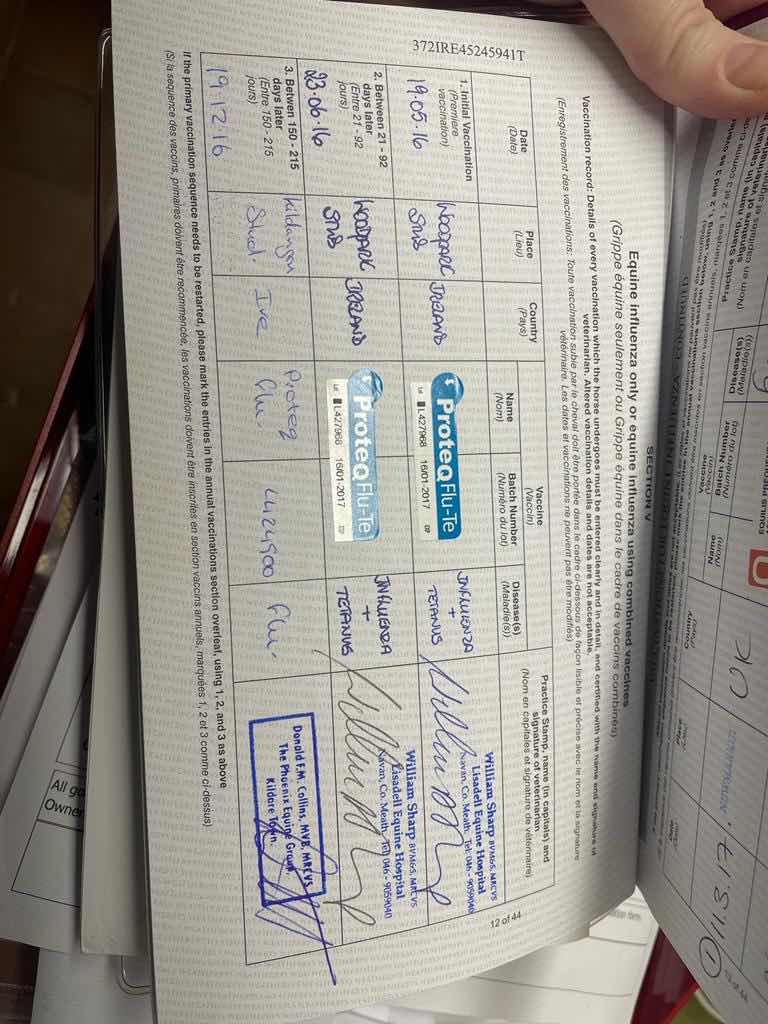 372IRE45245941T
SECTION V
Equine influenza only or equine influenza using combined vaccines
(Grippe équine seulement ou Grippe équine dans le cadre de vaccins combinés)
Vaccination record: Details of every vaccination which the horse undergoes must be entered clearly and in detail, and certified with the name and signature of
veterinarian. Altered vaccination details and dates are not acceptable.
(Enregistrement des vaccinations: Toute vaccination subie par le cheval doit être portée dans le cadre ci-dessous de façon lisible et précise avec le nom et la signature
vétérinaire. Les dates et vaccinations ne peuvent pas être modifiés)
Date
(Date)
Place
(Lieu)
Country
(Pays)
Vaccine
(Vaccin)
Name
(Nom)
Batch Number
(Numéro du lot)
Disease(s)
(Maladie(s))
Practice Stamp, name (in capitals) and
signature of veterinarian
(Nom en capitales et signature de vétérinaire)
1. Initial Vaccination
(Premiere
vaccination)
19.05.16
WOODPARK
STUD
IRELAND
ProteQ Flu-Te
L427968 16/01-2017
INFLUENZA
+
TETANUS
William Sharp BVM&S, MRCVS
Lisadell Equine Hospital
Navan, Co. Meath. Tel: 046 - 9059040
2. Between 21 - 92
days later
(Entre 21 - 92
jours)
23.06.16
WOODPARK
STUD
IRELAND
ProteQ Flu-Te
L427968 16/01-2017
INFLUENZA
+
TETANUS
William Sharp BVM&S, MRCVS
Lisadell Equine Hospital
Navan, Co. Meath. Tel: 046 - 9059040
3. Betwen 150 - 215
days later
(Entre 150 - 215
jours)
19.12.16
Kildangan
Stud
Ire
Proteq
Flu.
L424900
Flu.
Donald F.M. Collins, MVB, MRCVS
The Phoenix Equine Group
Kildare Town.
If the primary vaccination sequence needs to be restarted, please mark the entries in the annual vaccinations section overleaf, using 1, 2, and 3 as above
(Si la sequence des vaccins, primaires doivent être recommencée, les vaccinations doivent être inscrites en section vaccins annuels, marquées 1, 2 et 3 comme ci-dessus)
12 of 44
Practice Stamp, name (in capitals)
signature of veterinarian
Disease(s)
(Maladie(s))
Batch Number
(Numéro du lot)
Name
(Nom)
UK
1
11.3.17
All
Owner